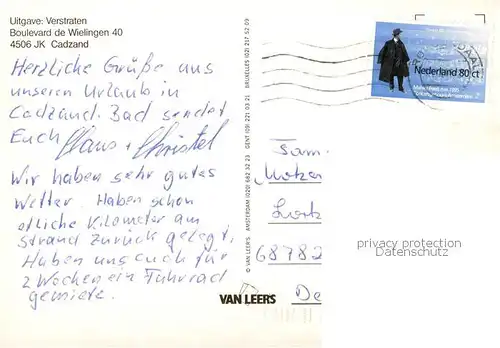 Uitgave: Verstraten
Boulevard de Wielingen 40
4506 JK Cadzand
Herzliche Grüße aus
unserem Urlaub in
Cadzand. Bad sendet
Euch Claus + Christel
Wir haben sehr gutes
Wetter. Haben schon
etliche Kilometer am
Strand zurück gelegt.
Haben uns auch für
2 Wochen ein Fahrrad
gemietet.
© VAN LEER'S AMSTERDAM (020) 682 32 23 GENT (09) 221 03 21 BRUXELLES (02) 217 52 09
VAN LEERS
Nederland 80 ct
Fam.
68782
De
privacy protection
Datenschutz